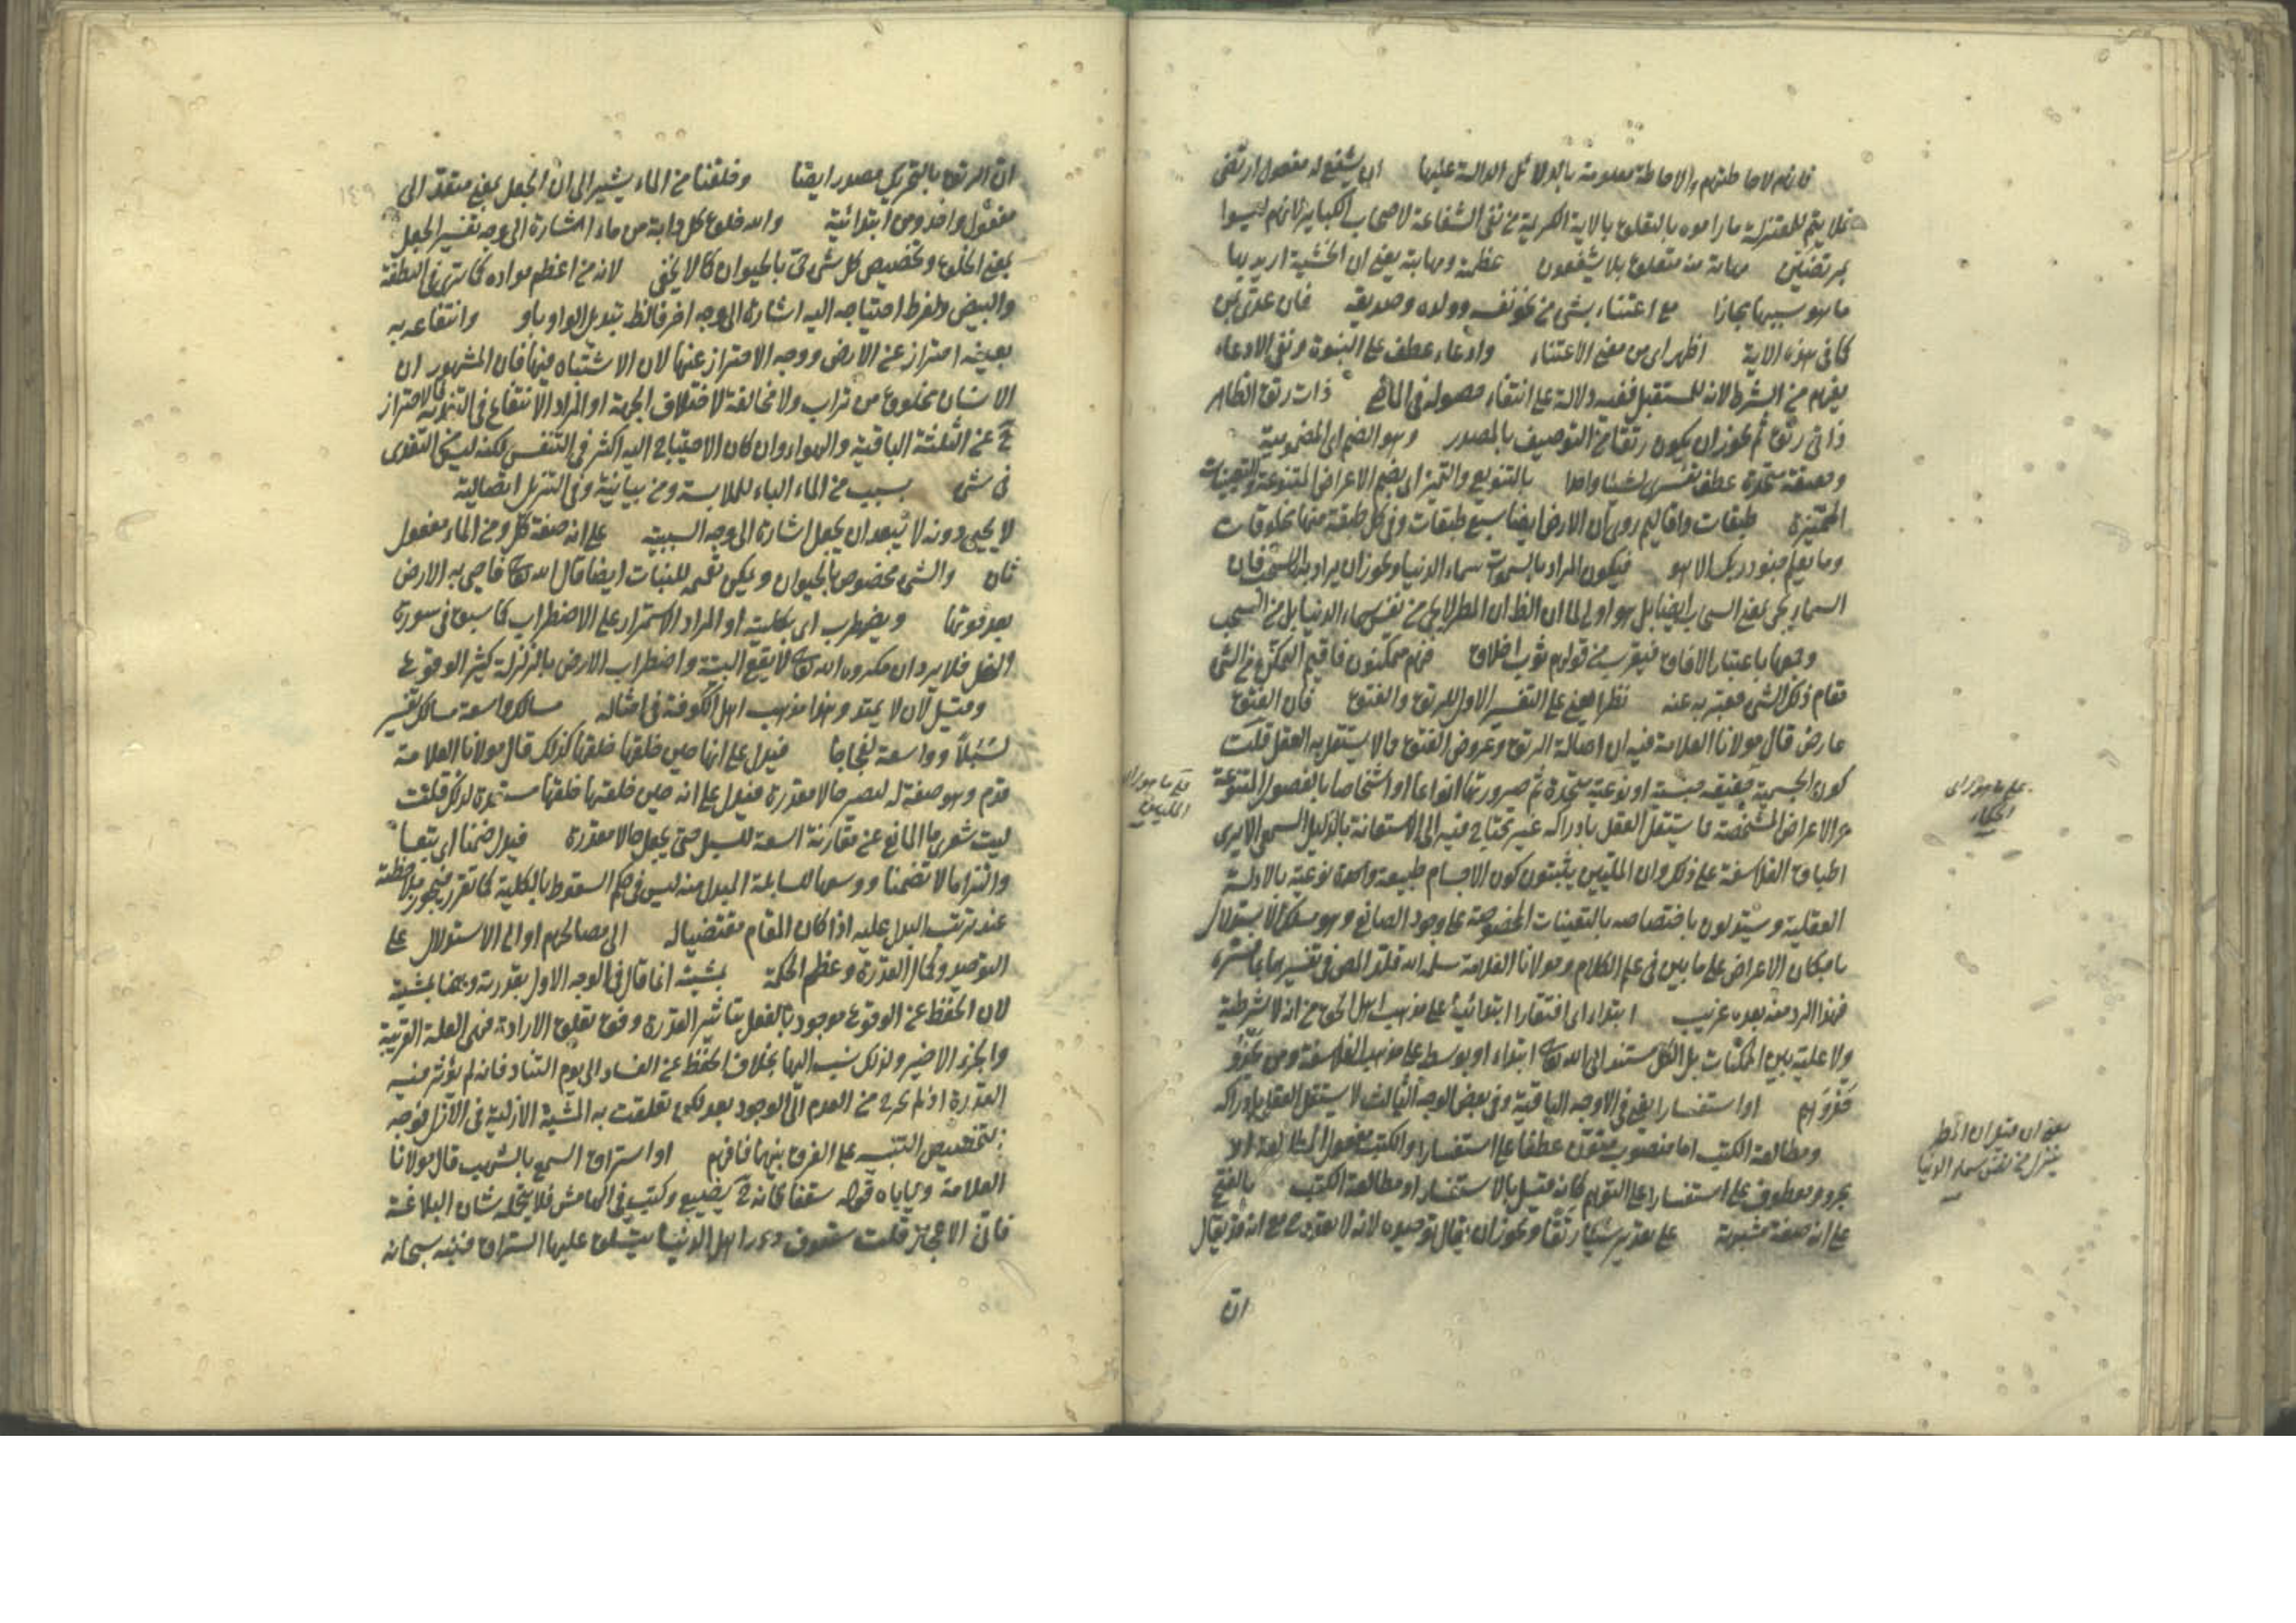 فانهم لاحاطتهم والاحاطة معلومة بالدلائل الدالة عليها ان يشفع له مفعول ارتضى
فلا يتم للمعتزلة ما راموه بالتعلق بالاية الكريمة من نفى الشفاعة لاصحاب الكباير فانهم ليسوا
بمرتضين مهابة منه متعلق بلا يشفعون عظمة ومهابة يعنى ان الخشية اريد بها
ما هو سببها مجازا مع اعتناء بشى من نحو نفسه وولده وصديقه فان عدى بمن
كما فى هذه الاية اظهر اى من معنى الاعتناء وادعاء عطف على البنوة ونفى الادعاء
يفهم من الشرط لانه للمستقبل ففيه دلالة على انتفاء حصوله فى الماضى ذات رتق الظاهر
ذاتى رتق ثم يجوز ان يكون رتقا من التوصيف بالمصدر وهو الضم اى المضمومية
وحقيقة متحدة عطف تفسيرى لشيئا واحدا بالتنويع والتميز اى بضم الاعراض المتنوعة والتعينات
المميزة طبقات واقاليم روى ان الارض ايضا سبع طبقات وفى كل طبقة منها مخلوقات
وما يعلم جنود ربك الا هو فيكون المراد بالسموات سماء الدنيا ويجوز ان يراد بها السحب فان
السماء يجى بمعنى السحاب ايضا بل هو اولى لما ان الظ ان المطر لا يجى من نفس سماء الدنيا بل من السحب
وجمعها باعتبار الافاق فيقرب من قولهم ثوب اخلاق فهم متمكنون فاقيم التمكن من الشى
مقام ذلك الشى فعبر به عنه نظرا يعنى على التفسير الاول للرتق والفتق فان الفتق
عارض قال مولانا العلامة فيه ان اصالة الرتق وعروض الفتق مما لا يستقل به العقل قلت
كون الجسمية حقيقة جنسية او نوعية متحدة ثم صيرورتها انواعا او اشخاصا بالفصول المنوعة
والاعراض المشخصة مما يستقل العقل بادراكه غير محتاج فيه الى الاستعانة بالدليل السمعى الا يرى
اطباق الفلاسفة على ذلك وان المليين يثبتون كون الاجسام طبيعة واحدة نوعية بالادلة
العقلية ويستدلون باختصاصه بالتعينات المخصوصة على وجود الصانع وهو مسلك الاستدلال
بامكان الاعراض على ما بين فى علم الكلام ومولانا العلامة سلمه الله قلد المص فى تفسيرهما بما فسره
فهذا الرد منه بعده غريب ابتداء اى افتقارا ابتدائيا على مذهب اهل الحق من انه لا شرطية
ولا علية بين الممكنات بل الكل مستند الى الله تعالى ابتداء او بوسط على مذهب الفلاسفة ومن يحذو
حذوهم او استفسارا يعنى فى الاوجه الباقية وفى بعض الوجه الثالث لا يستقل العقل بادراكه
ومطالعة الكتب اما منصوب منون عطفا على استفسارا والكتب مفعول المطالعة او لا
مجرور معطوف على استفسارا على التوهم كانه قيل بالاستفسار او مطالعة الكتب بالفتح
على انه صفة مشبهة على تقدير شيئا رتقا ويجوز ان يقال توحيده لانه لا يقدر مع انه قد يقال
ان
على ما هو راى
الحكماء
على ما هو راى
المليين
يعنى ان قيل ان المطر
ينزل من نفس سماء الدنيا
١٤٩
ان الرتق بالتحريك مصدر ايضا وخلقنا من الماء يشير الى ان الجعل بمعنى متعد الى
مفعول واحد ومن ابتدائية والله خلق كل دابة من ماء اشارة الى وجه تفسير الجعل
بمعنى الخلق وتخصيص كل شى حى بالحيوان كما لا يخفى لانه من اعظم مواده كما ترى فى النطفة
والبيض ولفرط احتياجه اليه اشارة الى وجه اخر فالظ تبديل الواو باو وانتفاعه به
بعينه احتراز عن الارض ووجه الاحتراز عنها لان الاشتباه فيها فان المشهور ان
الانسان مخلوق من تراب ولا مخالفة لاختلاف الجهة او المراد الانتفاع فى التغذية فالاحتراز
ح عن الثلثة الباقية والهواء وان كان الاحتياج اليه اكثر فى التنفس لكنه ليس من التغذى
فى شى بسبب من الماء الباء للملابسة ومن بيانية وفى التنزيل اتصالية
لا يحيى دونه لا يبعد ان يجعل اشارة الى وجه السببية على انه صفة كل ومن الماء مفعول
ثان والشى مخصوص بالحيوان ويمكن تعميمه للنبات ايضا قال الله تعالى فاحيى به الارض
بعد موتها ويضطرب اى بكليته او المراد الاستمرار على الاضطراب كما سبق فى سورة
النحل فلا يرد ان مكروه الله تعالى لا يقع البتة واضطراب الارض بالزلزلة كثير الوقوع
وقيل لان لا يميد وهذا مذهب اهل الكوفة فى امثاله مسالك واسعة مسالك تفسير
لسبلا وواسعة لفجاجا فيدل على انها حين خلقها خلقها كذلك قال مولانا العلامة
قدم وهو صفة له ليصير حالا مقدرة فيدل على انه حين خلقها خلقها مستعدة لذلك قلت
ليت شعرى ما المانع عن مقارنة السعة للسبل حتى يجعل حالا مقدرة فيدل ضمنا اى بتعا
والتزاما لا تضمنا ووسعها للسابلة المبدل منه ليس فى حكم السقوط بالكلية كما تقرر فيجوز ملاحظته
عند ترتب البدل عليه اذا كان المقام مقتضيا له الى مصالحهم او الى الاستدلال على
التوحيد وكمال القدرة وعظم الحكمة بمشيته انما قال فى الوجه الاول بقدرته وههنا بمشيته
لان الحفظ عن الوقوع موجود بالفعل بتاثير القدرة وفق تعلق الارادة فهى العلة القريبة
والجزء الاخير ولذلك نسب اليها بخلاف الحفظ عن الفساد الى يوم التناد فانه لم يؤثر فيه
القدرة اذ لم يخرج من العدم الى الوجود بعد لكن تعلقت به المشية الازلية فى الازل فوجه
التخصيص التنبيه على الفرق بينهما فافهم او استراق السمع بالشهب قال مولانا
العلامة وياباه قوله سقفا فانه ح يضيع وكتب فى الهامش فلا يتحمله شان البلاغة
فائق الاعجاز قلت سقوف دور اهل الدنيا يتسلق عليها السراق فنبه سبحانه